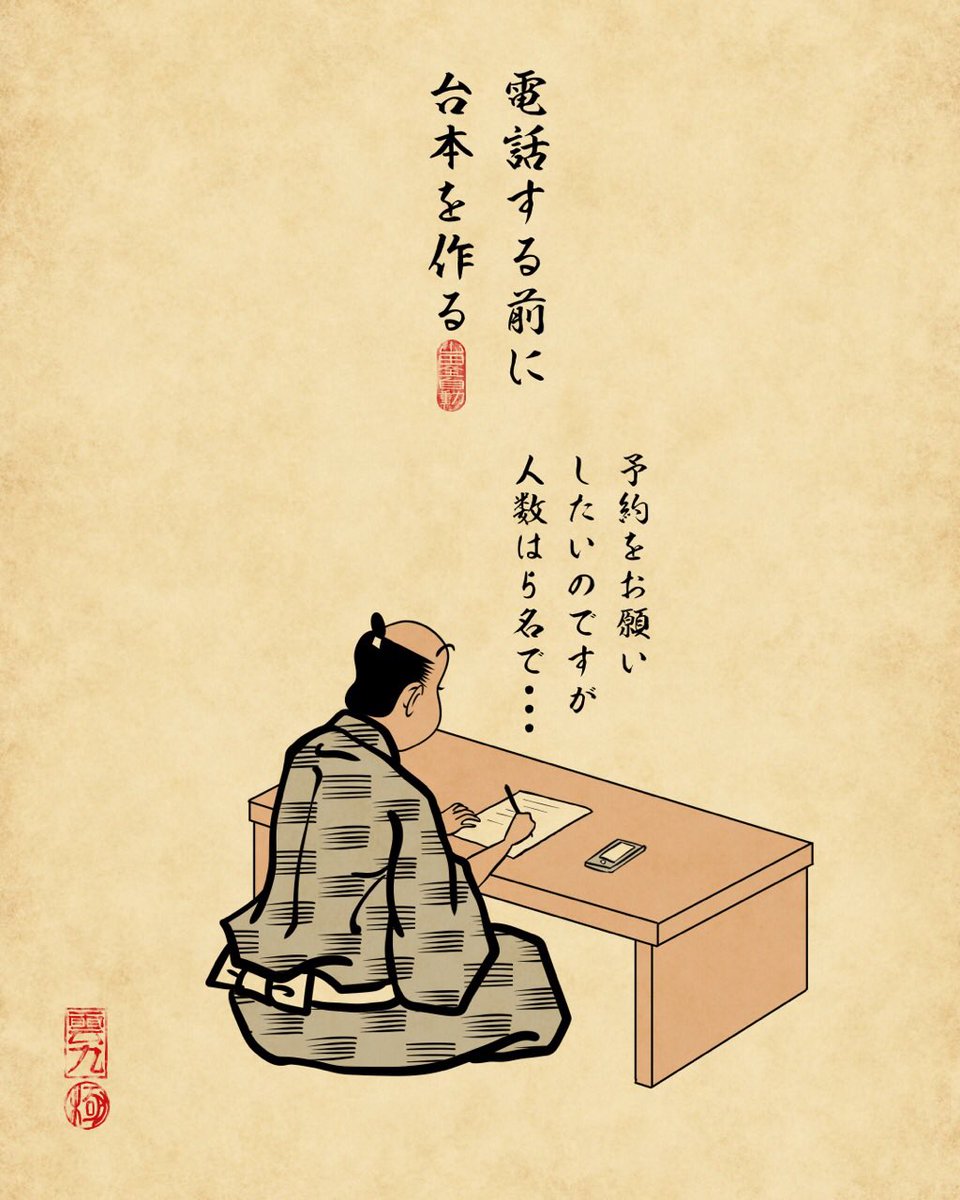 電話する前に
台本を作る
予約をお願い
したいのですが
人数は5名で・・・